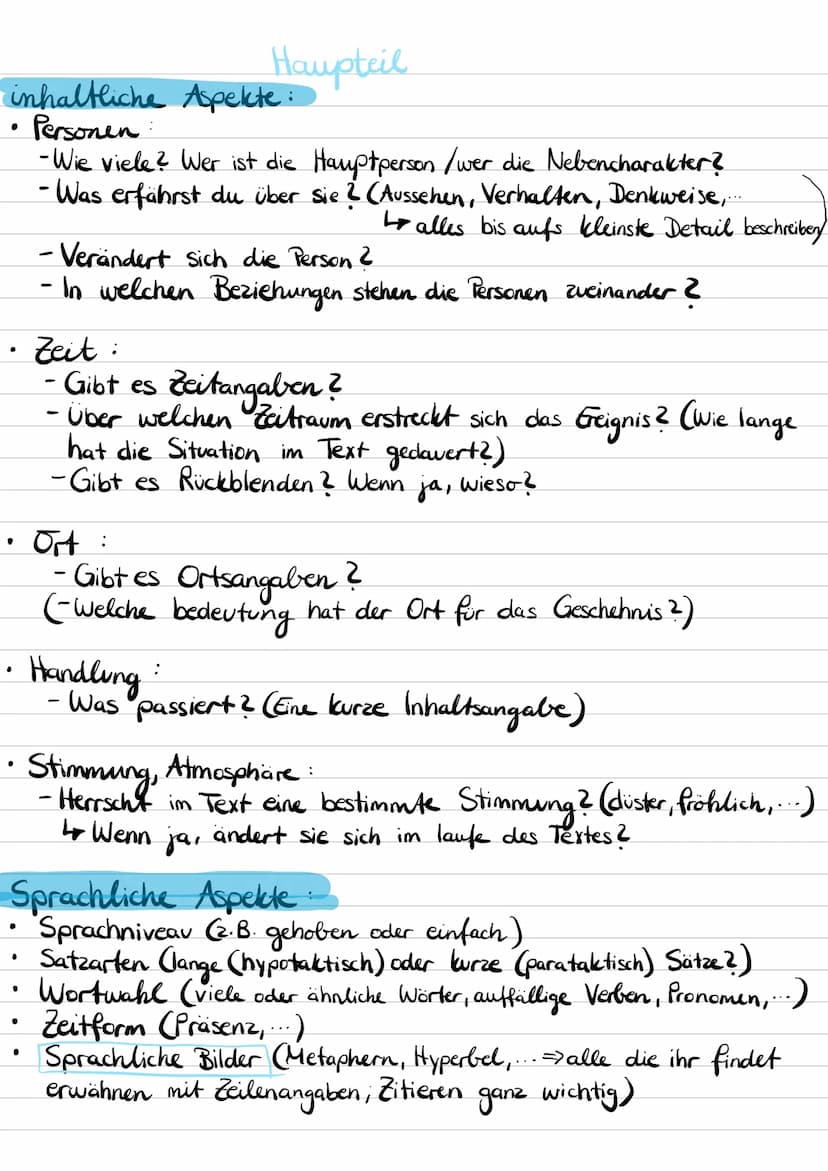 Haupteil
inhaltliche Aspekte:
• Personen:
- Wie viele? Wer ist die Hauptperson / wer die Nebencharakter?
- Was erfährst du über sie? (Aussehen, Verhalten, Denkweise,...
↳ alles bis aufs kleinste Detail beschreiben)
- Verändert sich die Person?
- In welchen Beziehungen stehen die Personen zueinander?
• Zeit:
- Gibt es Zeitangaben?
- Über welchen Zeitraum erstreckt sich das Ereignis? (Wie lange
hat die Situation im Text gedauert?)
- Gibt es Rückblenden? Wenn ja, wieso?
• Ort:
- Gibt es Ortsangaben?
(- Welche bedeutung hat der Ort für das Geschehnis?)
• Handlung:
- Was passiert? (Eine kurze Inhaltsangabe)
• Stimmung, Atmosphäre:
- Herrscht im Text eine bestimmte Stimmung? (düster, fröhlich,...)
↳ Wenn ja, ändert sie sich im laufe des Textes?
Sprachliche Aspekte:
• Sprachniveau (z.B. gehoben oder einfach)
• Satzarten (lange (hypotaktisch) oder kurze (parataktisch) Sätze?)
• Wortwahl (viele oder ähnliche Wörter, auffällige Verben, Pronomen,...)
• Zeitform (Präsenz,...)
• Sprachliche Bilder (Metaphern, Hyperbel,... ⇒ alle die ihr findet
erwähnen mit Zeilenangaben; Zitieren ganz wichtig)